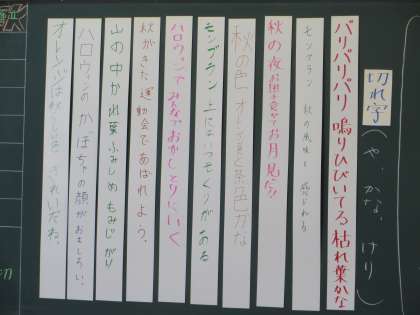 切れ字(や、かな、けり)
バリバリバリ 鳴りひびいてる 枯れ葉かな
モンブラン 秋の風味を 感じれる
秋の夜 お団子食べて お月見だ!!
秋の色 オレンジ色 茶色かな
モンブラン 上にはいつも くりがある
ハロウィンで みんなでおかし とりにいく
秋がきた 運動会で あばれよう、
山の中 かれ葉ふみしめ もみじがり
ハロウィンの かぼちゃの顔が おもしろい、
オレンジは 秋らしさ きれいだね、
切